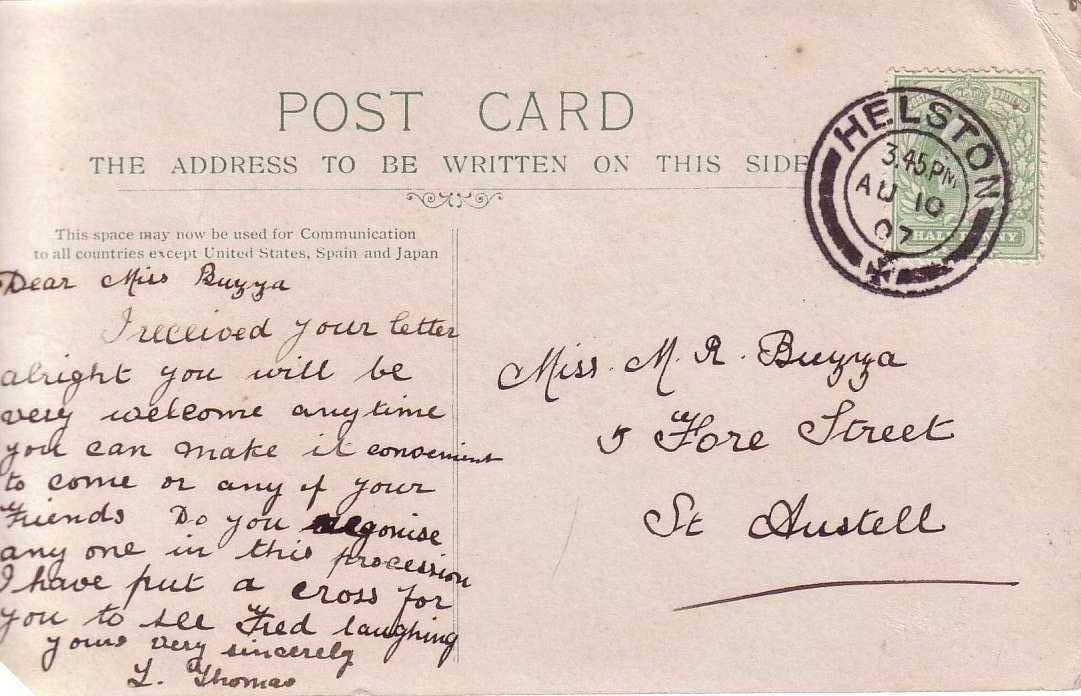 POST CARD
THE ADDRESS TO BE WRITTEN ON THIS SIDE
HELSTON
3.45 PM
AU 10
07
HALFPENNY
This space may now be used for Communication
to all countries except United States, Spain and Japan
Dear Miss Buzza
I received your letter
alright you will be
very welcome anytime
you can make it convenient
to come or any of your
Friends Do you regonise
any one in this procession
I have put a cross for
you to see Fred laughing
yours very sincerely
L. Thomas
Miss. M. R. Buzza
5 Fore Street
St Austell